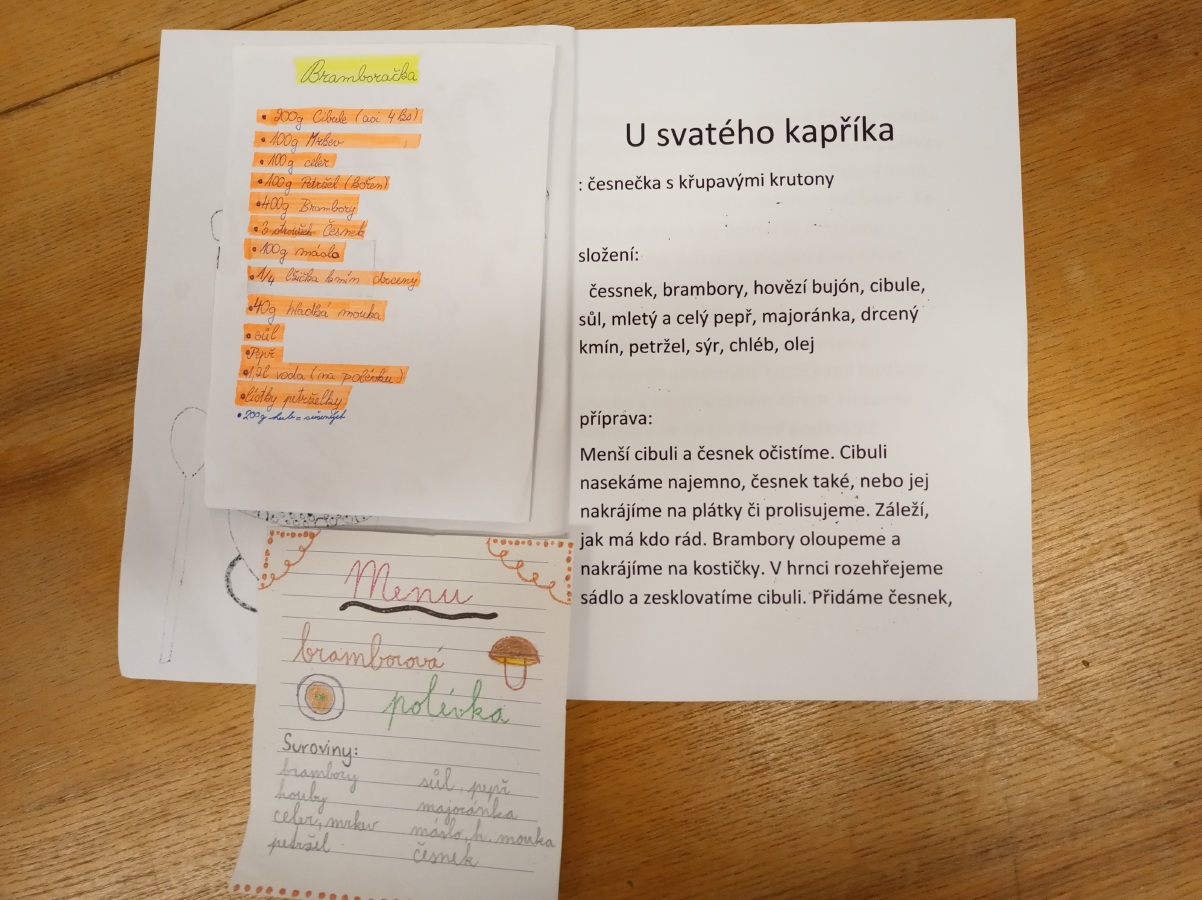 Bramboračka
• 200g Cibule (asi 4 ks)
• 100g Mrkev
• 100g celer
• 100g Petržel (kořen)
• 400g Brambory
• 3 Česnek
• 100g máslo
• 1/4 lžička kmín drcený
• 40g hladká mouka
• sůl
• Pepř
• 1,2l voda (na polévku)
• lístky petrželky
• 200g hub = sušených
Menu
bramborová
polévka
Suroviny:
brambory sůl, pepř
houby majoránka
celer, mrkev máslo, h. mouka
petržel česnek
U svatého kapříka
: česnečka s křupavými krutony
složení:
čessnek, brambory, hovězí bujón, cibule,
sůl, mletý a celý pepř, majoránka, drcený
kmín, petržel, sýr, chléb, olej
příprava:
Menší cibuli a česnek očistíme. Cibuli
nasekáme najemno, česnek také, nebo jej
nakrájíme na plátky či prolisujeme. Záleží,
jak má kdo rád. Brambory oloupeme a
nakrájíme na kostičky. V hrnci rozehřejeme
sádlo a zesklovatíme cibuli. Přidáme česnek,